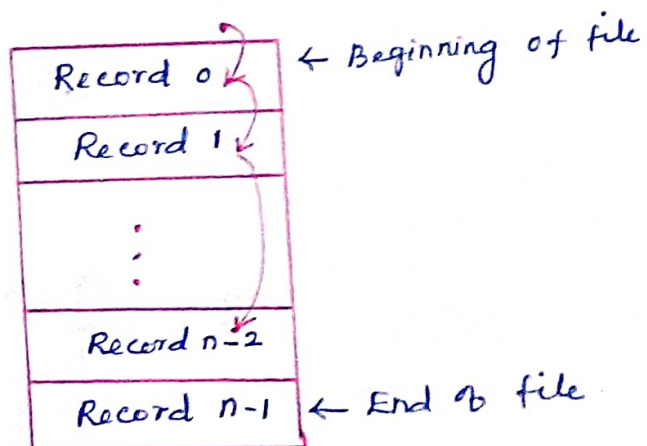 Record 0 ← Beginning of file
Record 1
Record n-2
Record n-1 ← End of file